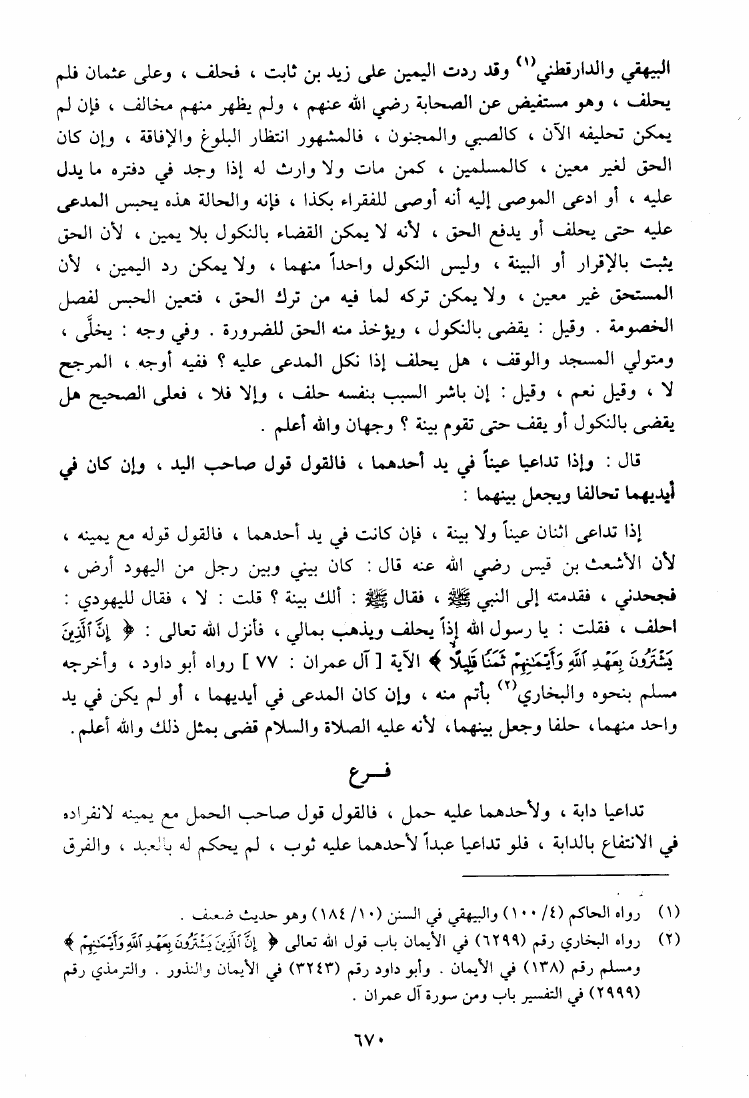 البيهقي والدارقطني(١) وقد ردت اليمين على زيد بن ثابت ، فحلف ، وعلى عثمان فلم
يحلف ، وهو مستفيض عن الصحابة رضي الله عنهم ، ولم يظهر منهم مخالف ، فإن لم
يمكن تحليفه الآن ، كالصبي والمجنون ، فالمشهور انتظار البلوغ والإفاقة ، وإن كان
الحق لغير معين ، كالمسلمين ، كمن مات ولا وارث له إذا وجد في دفتره ما يدل
عليه ، أو ادعى الموصى إليه أنه أوصى للفقراء بكذا ، فإنه والحالة هذه يحبس المدعى
عليه حتى يحلف أو يدفع الحق ، لأنه لا يمكن القضاء بالنكول بلا يمين ، لأن الحق
يثبت بالإقرار أو البينة ، وليس النكول واحداً منهما ، ولا يمكن رد اليمين ، لأن
المستحق غير معين ، ولا يمكن تركه لما فيه من ترك الحق ، فتعين الحبس لفصل
الخصومة . وقيل : يقضى بالنكول ، ويؤخذ منه الحق للضرورة . وفي وجه : يخلَّى ،
ومتولي المسجد والوقف ، هل يحلف إذا نكل المدعى عليه ؟ ففيه أوجه ، المرجح
لا ، وقيل نعم ، وقيل : إن باشر السبب بنفسه حلف ، وإلا فلا ، فعلى الصحيح هل
يقضى بالنكول أو يقف حتى تقوم بينة ؟ وجهان والله أعلم .
قال : وإذا تداعيا عيناً في يد أحدهما ، فالقول قول صاحب اليد ، وإن كان في
أيديهما تحالفا ويجعل بينهما :
إذا تداعى اثنان عيناً ولا بينة ، فإن كانت في يد أحدهما ، فالقول قوله مع يمينه ،
لأن الأشعث بن قيس رضي الله عنه قال : كان بيني وبين رجل من اليهود أرض ،
فجحدني ، فقدمته إلى النبي ﷺ ، فقال ﷺ : ألك بينة ؟ قلت : لا ، فقال لليهودي :
احلف ، فقلت : يا رسول الله إذاً يحلف ويذهب بمالي ، فأنزل الله تعالى : ﴿ إِنَّ ٱلَّذِينَ
يَشْتَرُونَ بِعَهْدِ ٱللَّهِ وَأَيْمَٰنِهِمْ ثَمَنًا قَلِيلًا ﴾ الآية [ آل عمران : ٧٧ ] رواه أبو داود ، وأخرجه
مسلم بنحوه والبخاري(٢) بأتم منه ، وإن كان المدعى في أيديهما ، أو لم يكن في يد
واحد منهما، حلفا وجعل بينهما، لأنه عليه الصلاة والسلام قضى بمثل ذلك والله أعلم.
فـرع
تداعيا دابة ، ولأحدهما عليه حمل ، فالقول قول صاحب الحمل مع يمينه لانفراده
في الانتفاع بالدابة ، فلو تداعيا عبداً لأحدهما عليه ثوب ، لم يحكم له بالعبد ، والفرق
(١) رواه الحاكم (١٠٠/٤) والبيهقي في السنن (١٨٤/١٠) وهو حديث ضعيف .
(٢) رواه البخاري رقم (٦٢٩٩) في الأيمان باب قول الله تعالى ﴿ إِنَّ ٱلَّذِينَ يَشْتَرُونَ بِعَهْدِ ٱللَّهِ وَأَيْمَٰنِهِمْ ﴾
ومسلم رقم (١٣٨) في الأيمان . وأبو داود رقم (٣٢٤٣) في الأيمان والنذور . والترمذي رقم
(٢٩٩٩) في التفسير باب ومن سورة آل عمران .
٦٧٠